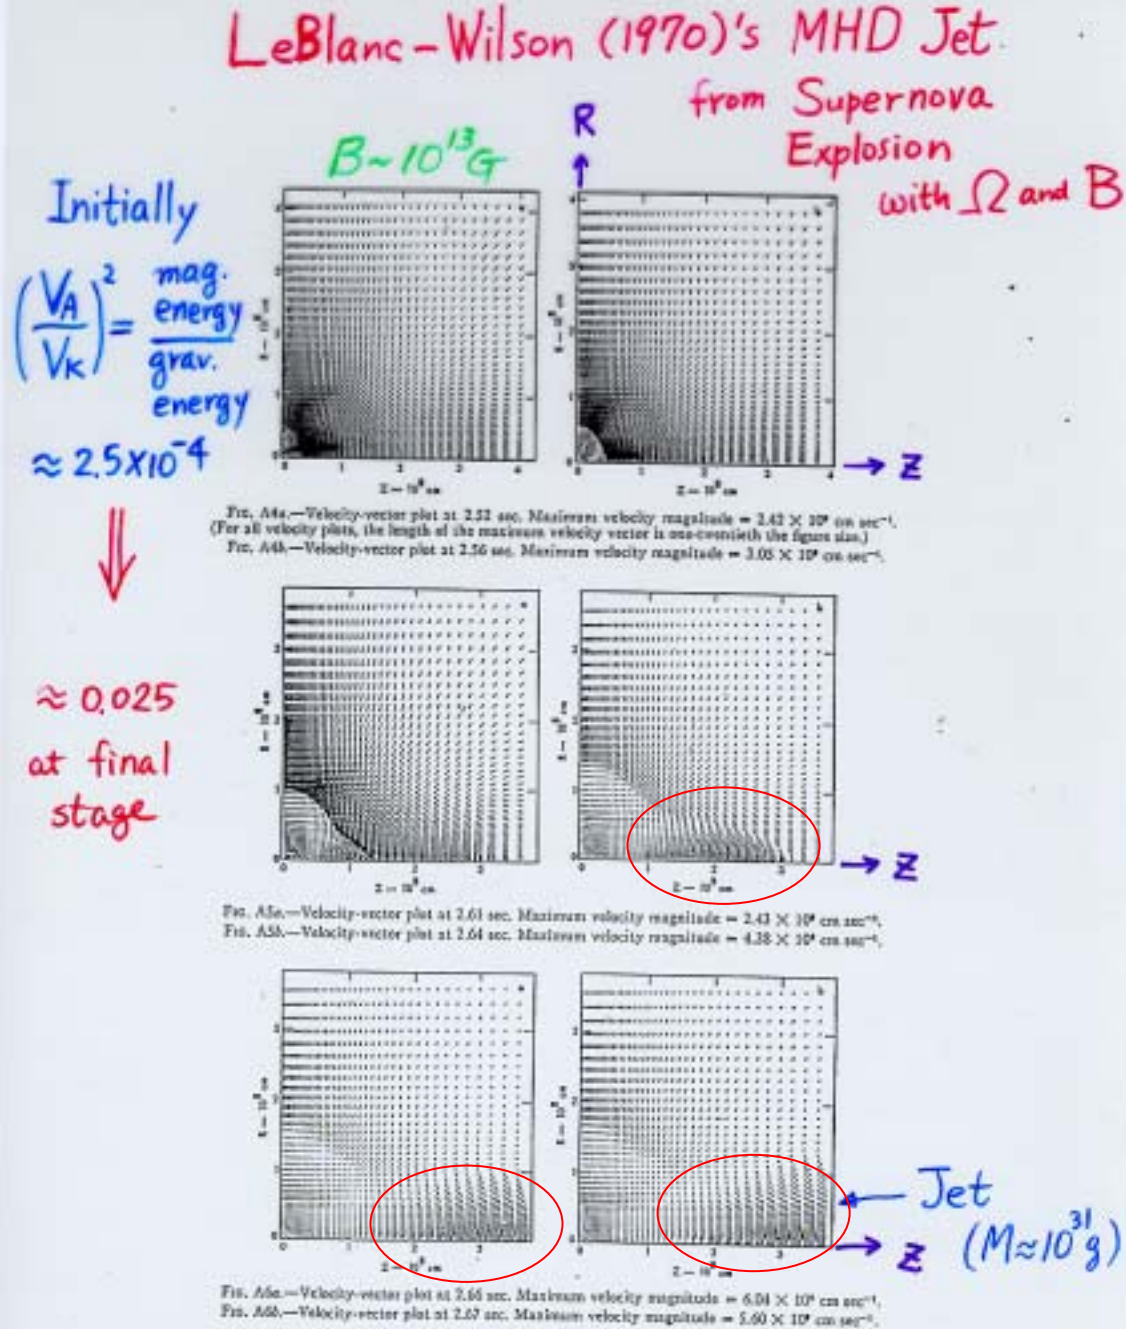 LeBlanc-Wilson (1970)'s MHD Jet
from Supernova
Explosion
with Ω and B
B~10¹³G
R
Initially
(VA/VK)² = mag. energy / grav. energy
≈ 2.5×10⁻⁴
→ Z
FIG. A4a.—Velocity-vector plot at 2.52 sec. Maximum velocity magnitude = 2.42 × 10⁹ cm sec⁻¹.
(For all velocity plots, the length of the maximum velocity vector is one-twentieth the figure size.)
FIG. A4b.—Velocity-vector plot at 2.56 sec. Maximum velocity magnitude = 3.05 × 10⁹ cm sec⁻¹.
≈ 0.025
at final
stage
→ Z
FIG. A5a.—Velocity-vector plot at 2.61 sec. Maximum velocity magnitude = 2.43 × 10⁹ cm sec⁻¹.
FIG. A5b.—Velocity-vector plot at 2.64 sec. Maximum velocity magnitude = 4.38 × 10⁹ cm sec⁻¹.
Jet
→ Z (M≈10³¹g)
FIG. A6a.—Velocity-vector plot at 2.66 sec. Maximum velocity magnitude = 6.04 × 10⁹ cm sec⁻¹.
FIG. A6b.—Velocity-vector plot at 2.67 sec. Maximum velocity magnitude = 5.60 × 10⁹ cm sec⁻¹.